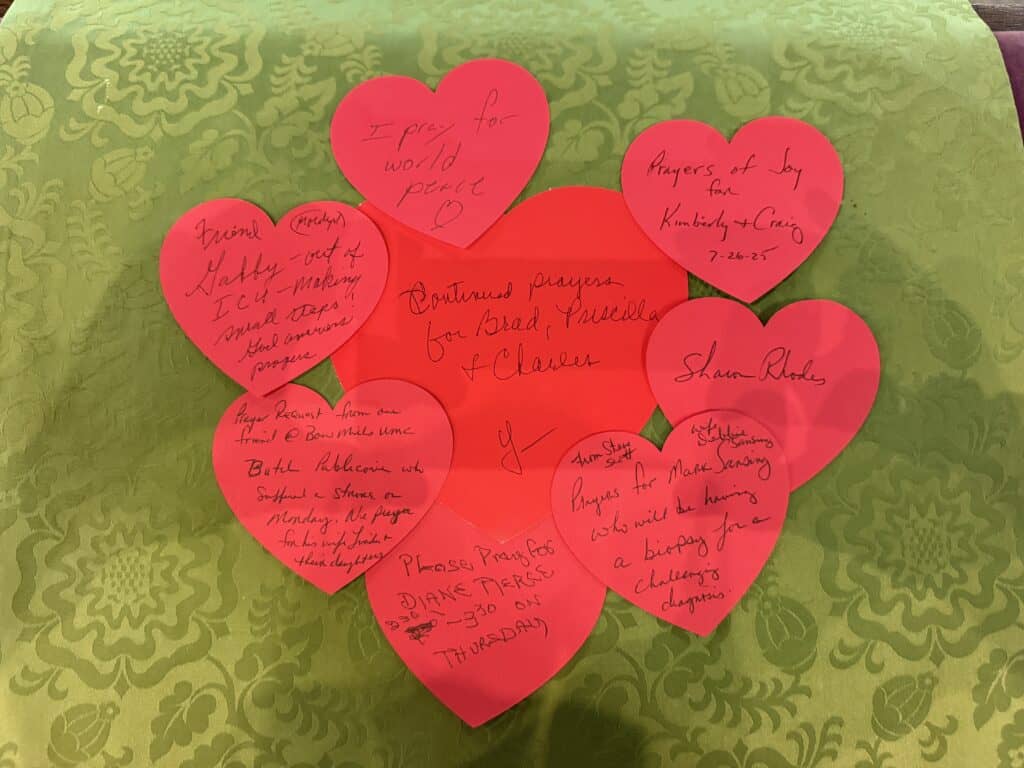 I pray for
world
peace
Prayers of Joy
for
Kimberly + Craig
7-26-25
Friend
Gabby - out of
ICU - making
small steps!
God answers
prayers
Continued prayers
for Brad, Priscilla
+ Charles
Sharon Rhodes
Prayer Request from our
friend @ Bow Mills UMC
Butch Publicover who
suffered a stroke on
Monday. We prayer
for his wife
their daughters
From
wife
Debbie
Sansing
Prayers for Mark Sansing
who will be having
a biopsy for a
challenging
diagnosis.
Please Pray for
DIANE MERGE
~ 330 ON
THURSDAY